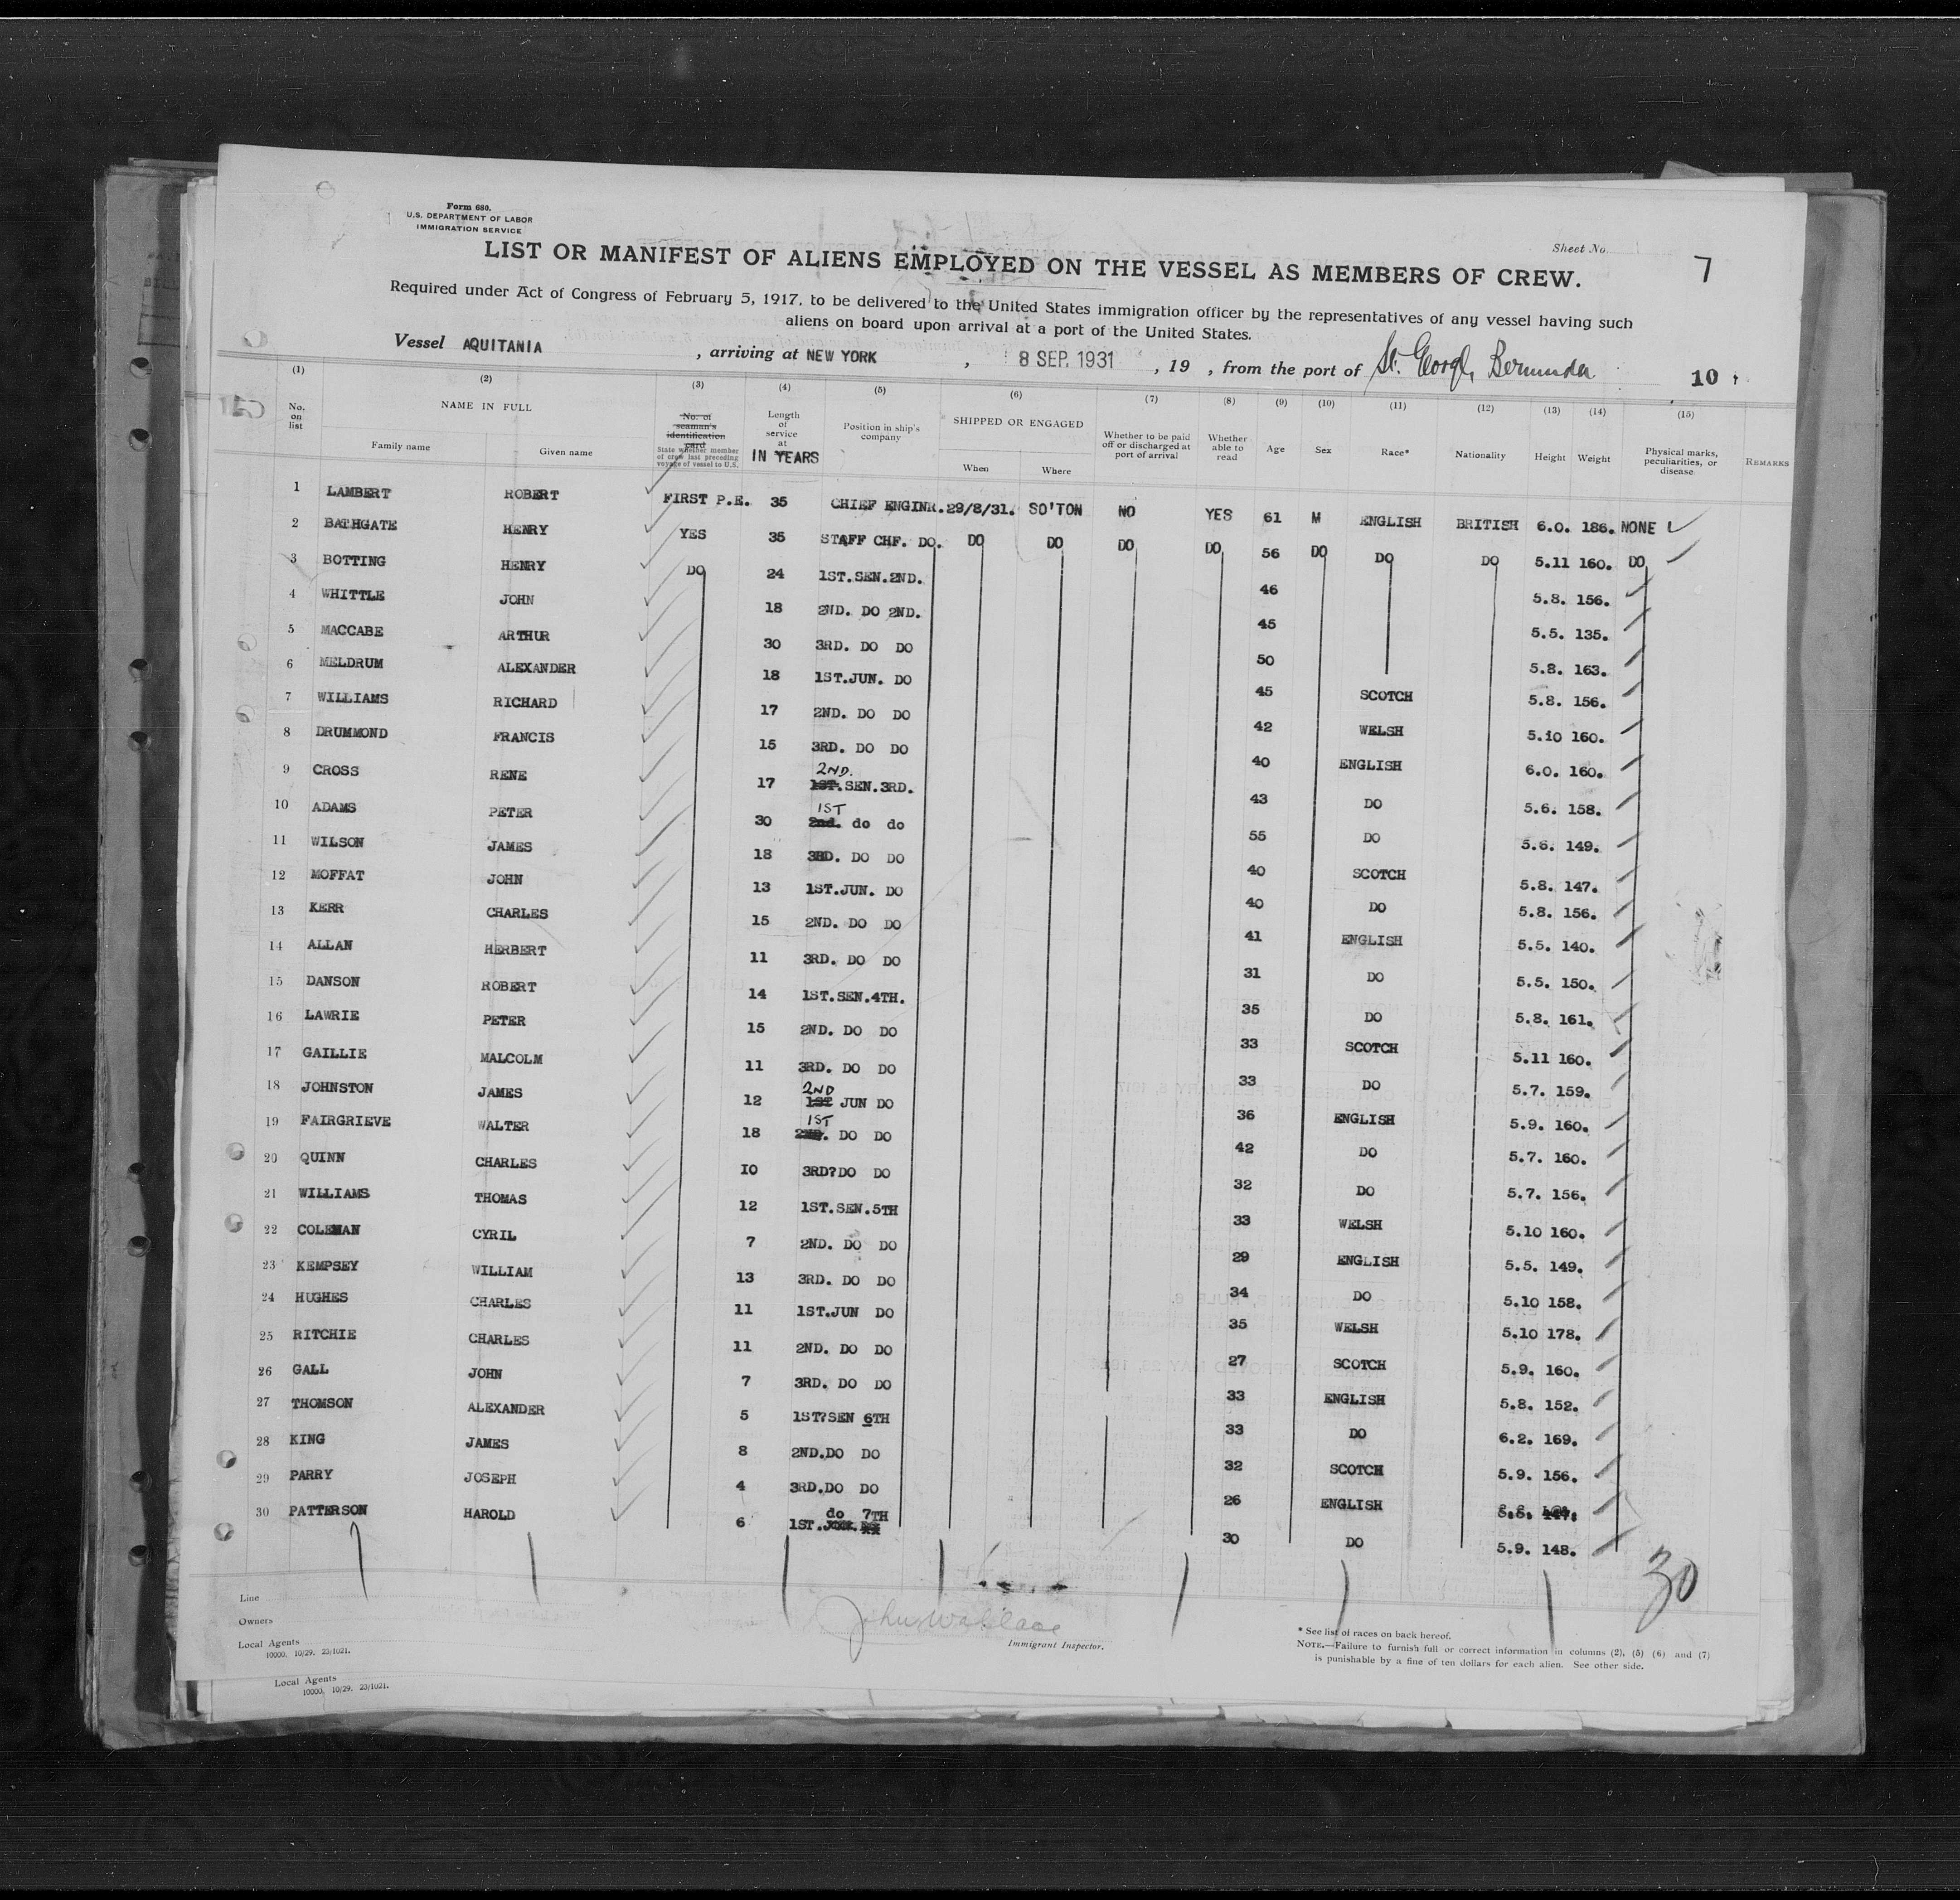 Form 680.
U.S. DEPARTMENT OF LABOR
IMMIGRATION SERVICE
Sheet No. 7
LIST OR MANIFEST OF ALIENS EMPLOYED ON THE VESSEL AS MEMBERS OF CREW.
Required under Act of Congress of February 5, 1917, to be delivered to the United States immigration officer by the representatives of any vessel having such
aliens on board upon arrival at a port of the United States.
Vessel AQUITANIA , arriving at NEW YORK , 8 SEP. 1931 , 19 , from the port of St. George, Bermuda
10
(1) (2) (3) (4) (5) (6) (7) (8) (9) (10) (11) (12) (13) (14) (15)
No. on list
NAME IN FULL
Family name Given name
No. of seaman's identification card
State whether member of crew last preceding voyage of vessel to U.S.
Length of service at
IN YEARS
Position in ship's company
SHIPPED OR ENGAGED
When Where
Whether to be paid off or discharged at port of arrival
Whether able to read
Age Sex Race* Nationality Height Weight
Physical marks, peculiarities, or disease
REMARKS
1 LAMBERT ROBERT FIRST P.E. 35 CHIEF ENGINR. 29/8/31. SO'TON NO YES 61 M ENGLISH BRITISH 6.0. 186. NONE
2 BATHGATE HENRY YES 35 STAFF CHF. DO. DO DO DO DO 56 DO DO DO 5.11 160. DO
3 BOTTING HENRY DO 24 1ST.SEN.2ND. 46 5.8. 156.
4 WHITTLE JOHN 18 2ND. DO 2ND. 45 5.5. 135.
5 MACCABE ARTHUR 30 3RD. DO DO 50 5.8. 163.
6 MELDRUM ALEXANDER 18 1ST.JUN. DO 45 SCOTCH 5.8. 156.
7 WILLIAMS RICHARD 17 2ND. DO DO 42 WELSH 5.10 160.
8 DRUMMOND FRANCIS 15 3RD. DO DO 40 ENGLISH 6.0. 160.
2ND.
9 CROSS RENE 17 1ST.SEN.3RD. 43 DO 5.6. 158.
1ST
10 ADAMS PETER 30 2nd. do do 55 DO 5.6. 149.
11 WILSON JAMES 18 3RD. DO DO 40 SCOTCH 5.8. 147.
12 MOFFAT JOHN 13 1ST.JUN. DO 40 DO 5.8. 156.
13 KERR CHARLES 15 2ND. DO DO 41 ENGLISH 5.5. 140.
14 ALLAN HERBERT 11 3RD. DO DO 31 DO 5.5. 150.
15 DANSON ROBERT 14 1ST.SEN.4TH. 35 DO 5.8. 161.
16 LAWRIE PETER 15 2ND. DO DO 33 SCOTCH 5.11 160.
17 GAILLIE MALCOLM 11 3RD. DO DO 33 DO 5.7. 159.
2ND
18 JOHNSTON JAMES 12 1ST JUN DO 36 ENGLISH 5.9. 160.
1ST
19 FAIRGRIEVE WALTER 18 2ND. DO DO 42 DO 5.7. 160.
20 QUINN CHARLES 10 3RD?DO DO 32 DO 5.7. 156.
21 WILLIAMS THOMAS 12 1ST.SEN.5TH 33 WELSH 5.10 160.
22 COLEMAN CYRIL 7 2ND. DO DO 29 ENGLISH 5.5. 149.
23 KEMPSEY WILLIAM 13 3RD. DO DO 34 DO 5.10 158.
24 HUGHES CHARLES 11 1ST.JUN DO 35 WELSH 5.10 178.
25 RITCHIE CHARLES 11 2ND. DO DO 27 SCOTCH 5.9. 160.
26 GALL JOHN 7 3RD. DO DO 33 ENGLISH 5.8. 152.
27 THOMSON ALEXANDER 5 1ST?SEN 6TH 33 DO 6.2. 169.
28 KING JAMES 8 2ND.DO DO 32 SCOTCH 5.9. 156.
29 PARRY JOSEPH 4 3RD.DO DO 26 ENGLISH
do 7TH
30 PATTERSON HAROLD 6 1ST. 30 DO 5.9. 148.
30
Line
Owners
Local Agents
10000. 10/29. 23/1021.
John Wallace
Immigrant Inspector.
* See list of races on back hereof.
NOTE.—Failure to furnish full or correct information in columns (2), (5) (6) and (7)
is punishable by a fine of ten dollars for each alien. See other side.
Local Agents
10000. 10/29. 23/1021.